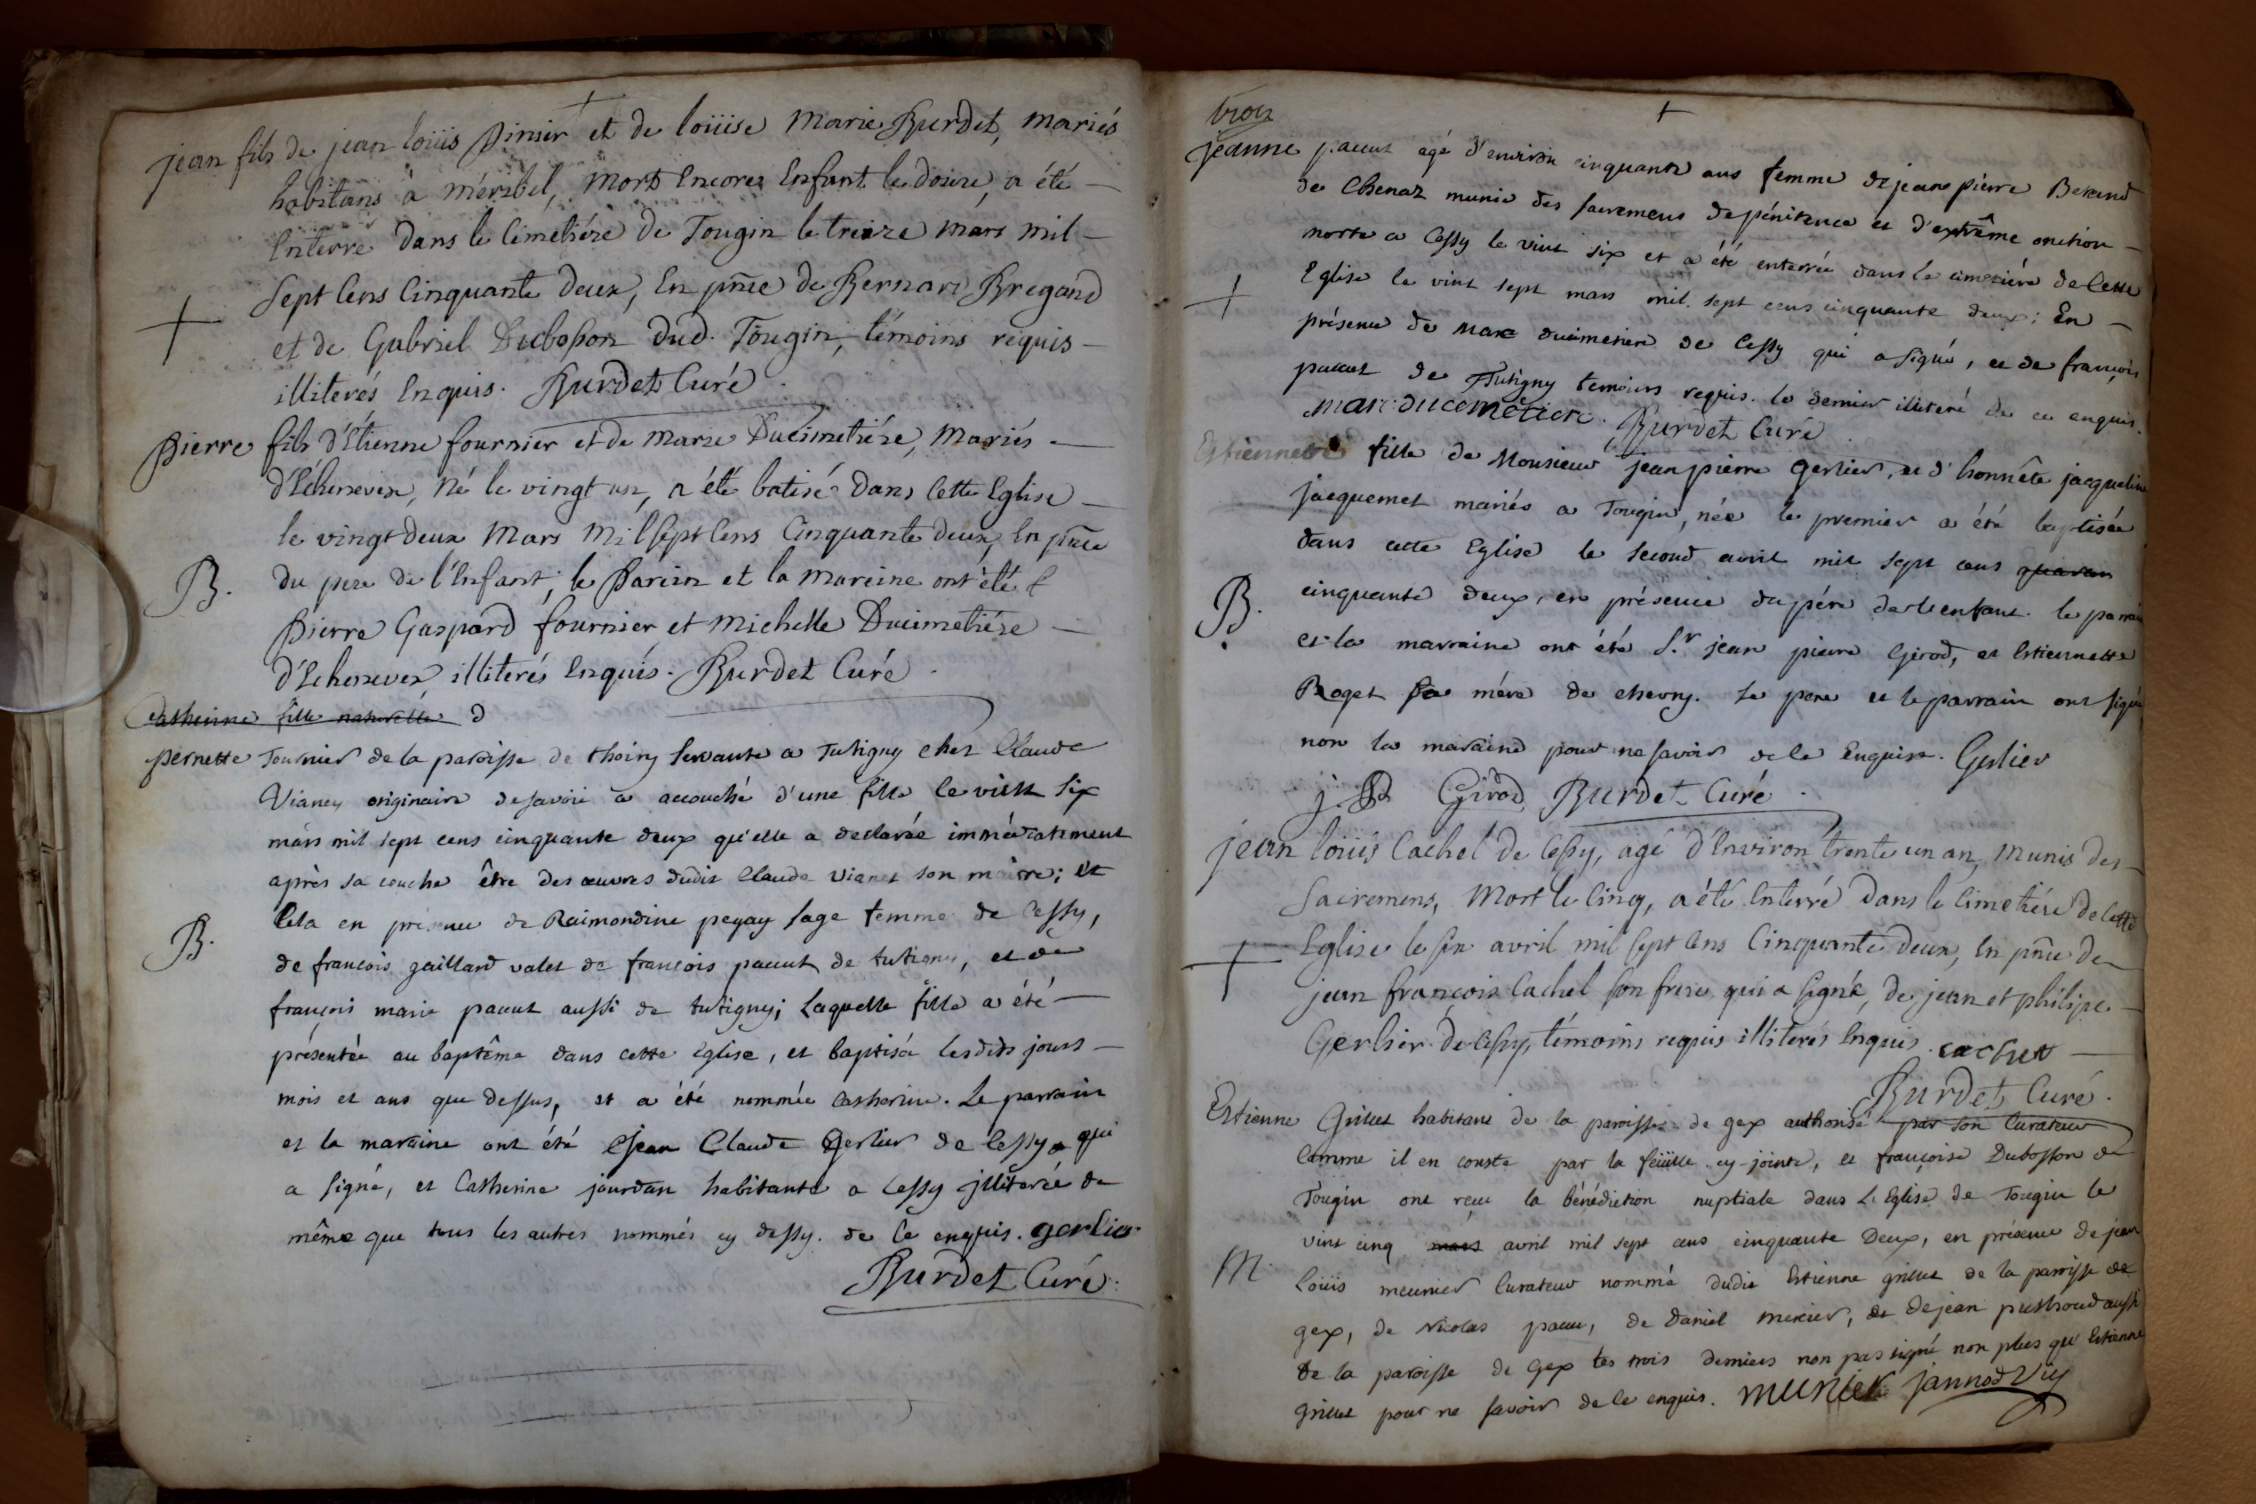 jean fils de jean loüis Dinier et de loüise Marie Burdet, mariés
habitans a meribel, mort Encores Enfant le douze, a été
Enterré dans le Cimetiére de Tougin le treize mars mil
Sept Cens Cinquante deux, En pnce de Bernard Bregand
et de Gabriel Dubosson dud. Tougin, témoins requis
illiterés Enquis. Burdet Curé.
Pierre fils d'Etienne fournier et de Marie Ducimetiére, mariés
d'Echenevex, Né le vingt un, a été batisé dans Cette Eglise
le vingt deux Mars Mil Sept Cens Cinquante deux, En pnce
B. du pere de l'Enfant, le Parein et la mareine ont été
Pierre Gaspard fournier et michelle Ducimetiére
d'Echenevex illiterés Enquis. Burdet Curé.
Catherine fille naturelle d
Pernette Tournier de la paroisse de thoiry servante a Tutigny chez Claude
Vianey originaire de savoie a accouché d'une fille le vint six
mars mil sept cens cinquante deux qu'elle a declarée immédiatement
après sa couche être des œuvres dudit Claude Vianet son maitre; et
B. Cela en présence de Raimondine peyay sage femme de Cessy,
de françois gaillard valet de françois pacut de tutigny, et de
françois marie pacut aussi de tutigny; Laquelle fille a été
présentée au baptême dans cette Eglise, et baptisée lesdits jours
mois et ans que dessus, et a été nommée Catherine. Le parrain
et la maraine ont été Jean Claude Gerlier de Cessy qui
a signé, et Catherine jourdan habitante a Cessy jlliterée de
même que tous les autres nommés cy dessy. de ce enquis. gerlier
Burdet Curé.
trois
jeanne pacut agé d'environ cinquante ans femme de jean pierre Beraud
de Chenaz munie des sacremens de pénitence et d'extrême onction
morte a Cessy le vint six et a été enterrée dans le cimetiére de Cette
Eglise le vint sept mars mil sept cens cinquante deux; En
présence de Marc ducimetiere de Cessy qui a signé, et de françois
pacut de Tutigny temoins requis. le dernier illiteré de ce enquis.
marc ducemetiere. Burdet Curé
Estiennette fille de Monsieur jean pierre Gerlier, et d'honnête jacqueline
jacquemet mariés a Tougin, née le premier a été baptisée
dans cette Eglise le second avril mil sept cens quaran
B. cinquante deux, en présence du pére de l'enfant. le parrain
et la marraine ont été S.r jean pierre Girod, et Estiennette
Roget sa mére de chevry. Le pere et le parrain ont signé
non la maraine pour ne savoir de ce Enquise. Gerlier
j. P Girod, Burdet Curé.
jean loüis Cachet de Cessy, agé d'Environ trente un an, munis des
Sacremens, Mort le Cinq, a été Enterré dans le Cimetiére de Cette
Eglise le six avril mil sept Cens Cinquante deux, En pnce de
jean françois Cachet son frere qui a signé, de jean et philipe
Gerlier de Cessy, témoins requis illiterés Enquis. cachet
Burdet Curé.
Estienne Grillet habitant de la paroisse de gex authorisé par son Curateur
Comme il en conste par la feüille cy-jointe, et françoise Dubosson de
Tougin ont reçu la bénédiction nuptiale dans L'Eglise de Tougin le
vint cinq mars avril mil sept cens cinquante Deux, en présence de jean
M. Loüis meunier Curateur nommé dudit Estienne grillet de la paroisse de
gex, de Nicolas pacut, de Daniel mercier, et de jean aussi
de la paroisse de Gex les trois derniers non pas signé non plus qu'Estienne
Grillet pour ne savoir de ce enquis. munier jannod Vic